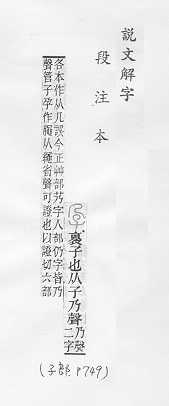 說文解字
段注本
裹子也从子乃聲乃聲二字
各本作从几誤今正艸部艿字人部仍字皆乃
聲管子孕作𦢊从繩省聲可證也以證切六部
(子部 P749)